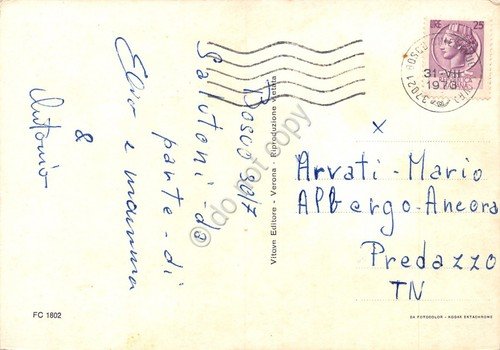 Bosco 30/7
Salutoni-da
parte-di
Elvo e mamma
&
Antonio
Vitovm Editore - Verona - Riproduzione vietata
LIRE 25
37021 BOSCO
31-VII
1973
x
Arvati-Mario
Albergo-Ancora
Predazzo
TN
FC 1802
DA FOTOCOLOR - KODAK EKTACHROME
do not copy